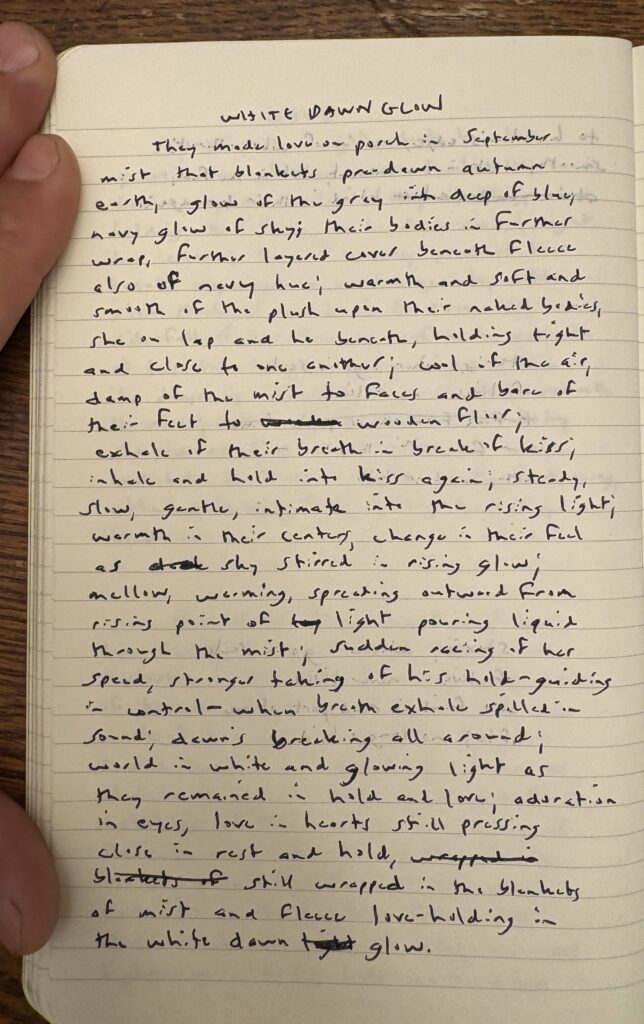 WHITE DAWN GLOW
They made love on porch in September
mist that blankets pre-dawn autumn
earth, glow of the gray into deep of blue,
navy glow of sky; their bodies in further
wrap, further layered cover beneath fleece
also of navy hue; warmth and soft and
smooth of the plush upon their naked bodies,
she on lap and he beneath, holding tight
and close to one another; cool of the air,
damp of the mist to faces and bare of
their feet to wooden floor;
exhale of their breath in break of kiss;
inhale and hold into kiss again; steady,
slow, gentle, intimate into the rising light;
warmth in their centers, change in their feel
as sky stirred in rising glow;
mellow, warming, spreading outward from
rising point of light pouring liquid
through the mist; sudden racing of her
speed, stronger taking of his hold-guiding
in control- when breath exhale spilled in
sound; dawn's breaking all around;
world in white and glowing light as
they remained in hold and love; adoration
in eyes, love in hearts still pressing
close in rest and hold, wrapped in
blankets of still wrapped in the blankets
of mist and fleece love-holding in
the white dawn light glow.